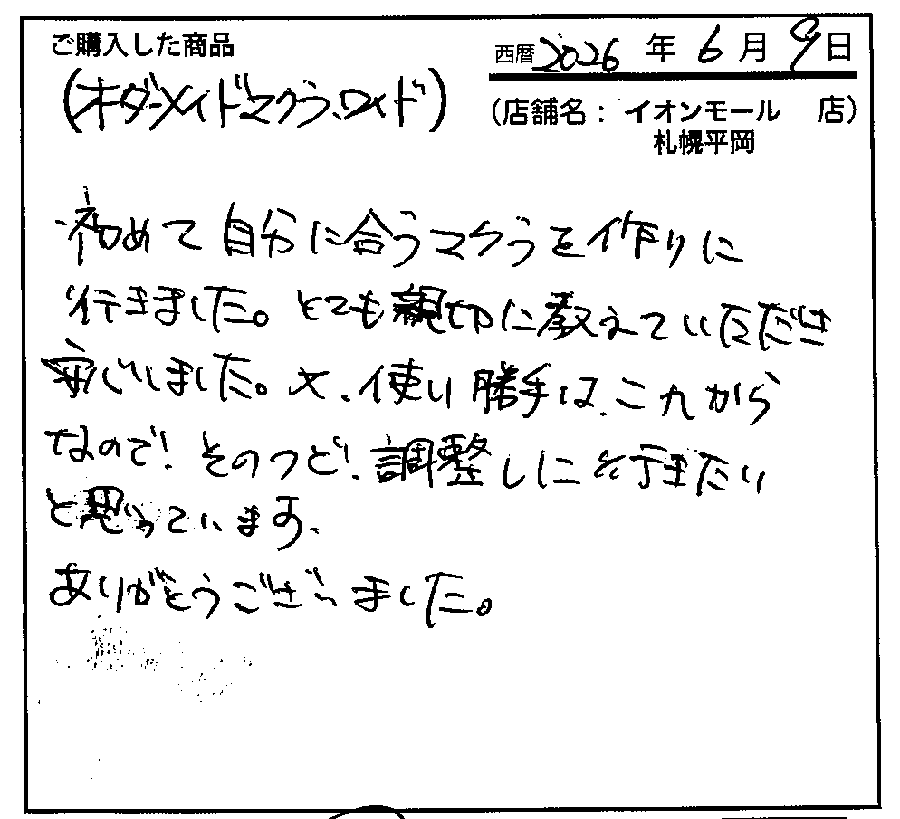 ご購入した商品
西暦2026年6月9日
(オーダーメイドマクラ、ロイド)
(店舗名： イオンモール 店)
札幌平岡
初めて自分に合うマクラを作りに
行きました。とても親切に教えていただき
安心しました。又、使い勝手は、これから
なので、そのつど、調整しに行きたい
と思っています、
ありがとうございました。